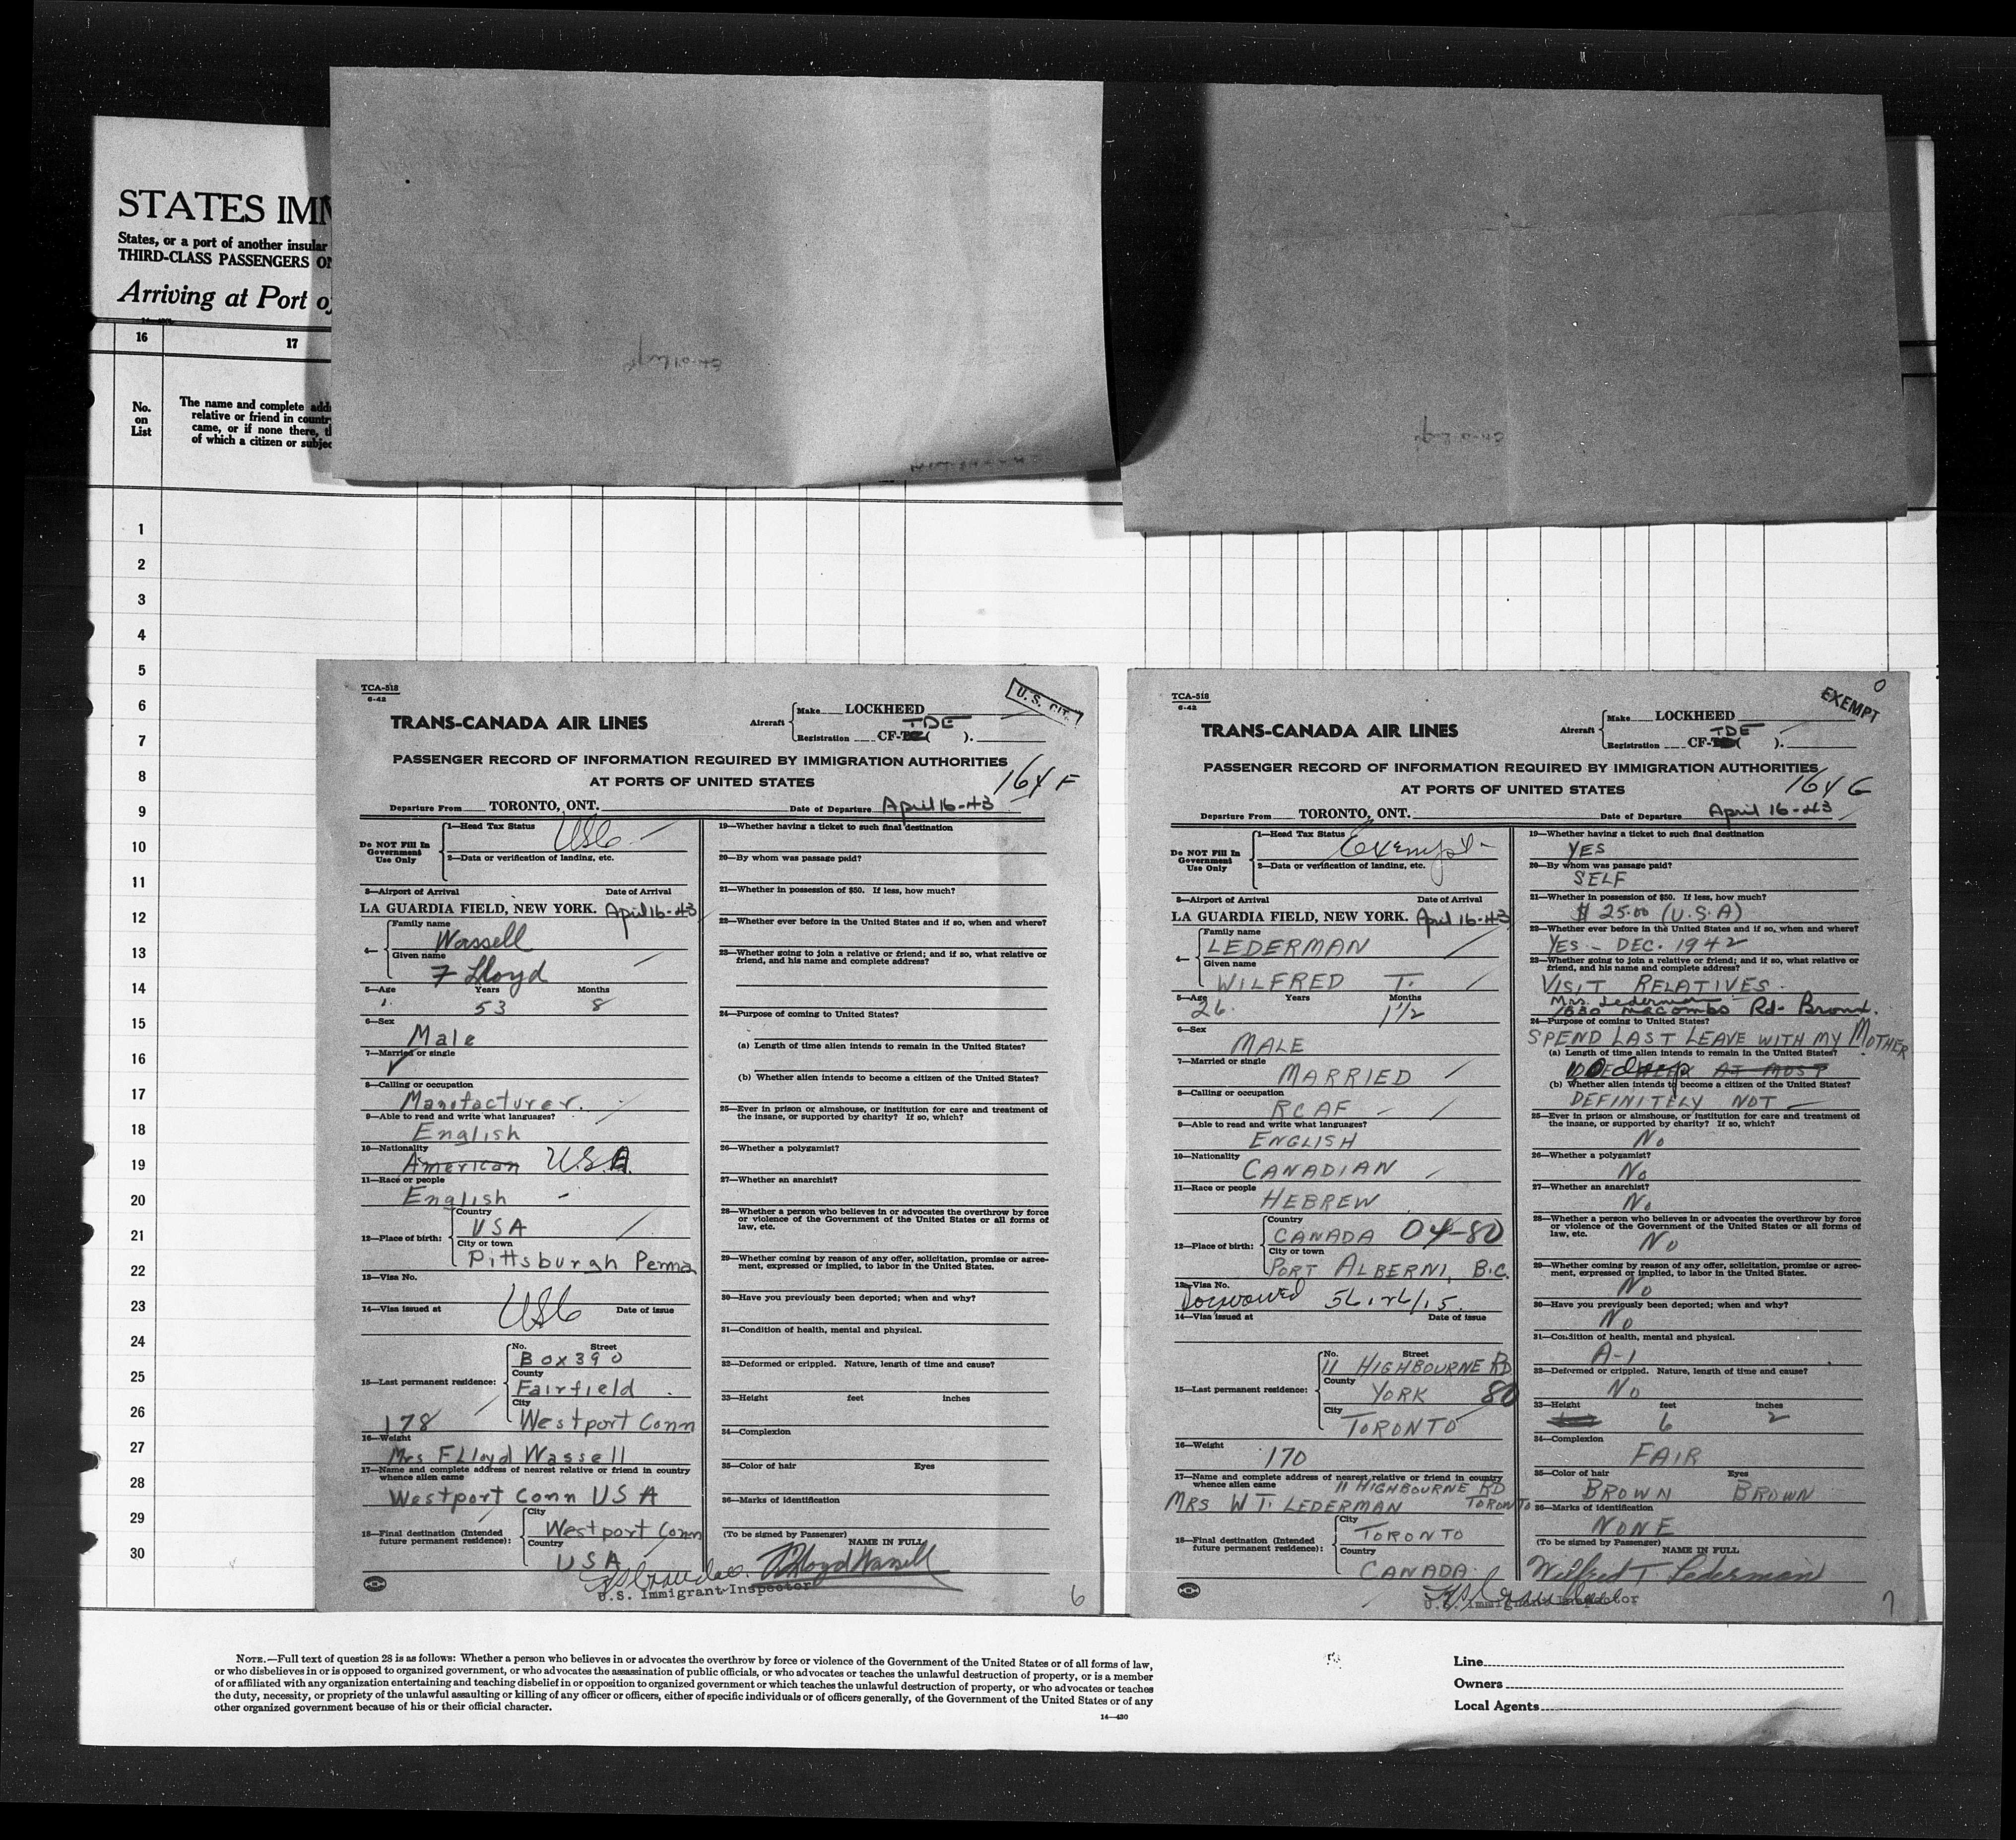 STATES IMM
States, or a port of another insular
THIRD-CLASS PASSENGERS ON
Arriving at Port of
16 17
No.
on
List
The name and complete add
relative or friend in countr
came, or if none there, t
of which a citizen or subjec
1
2
3
4
5
6
7
8
9
10
11
12
13
14
15
16
17
18
19
20
21
22
23
24
25
26
27
28
29
30
TCA-518
6-42
U. S. CIT.
TRANS-CANADA AIR LINES
Aircraft
Make LOCKHEED
TDE
Registration CF-T ( ).
PASSENGER RECORD OF INFORMATION REQUIRED BY IMMIGRATION AUTHORITIES
AT PORTS OF UNITED STATES
164 F
Departure From TORONTO, ONT. Date of Departure April 16-43
Do NOT Fill In
Government
Use Only
1—Head Tax Status USC
2—Data or verification of landing, etc.
3—Airport of Arrival Date of Arrival
LA GUARDIA FIELD, NEW YORK. April 16-43
4—
Family name
Wassell
Given name
F Lloyd
5—Age Years Months
53 8
6—Sex
Male
7—Married or single
✓
8—Calling or occupation
Manufacturer.
9—Able to read and write what languages?
English
10—Nationality
American U.S.A.
11—Race or people
English
12—Place of birth:
Country
USA
City or town
Pittsburgh Penna
13—Visa No.
USC
14—Visa issued at Date of issue
15—Last permanent residence:
No. Street
Box 390
County
Fairfield
City
Westport Conn
178
16—Weight
Mrs F Lloyd Wassell
17—Name and complete address of nearest relative or friend in country
whence alien came
Westport Conn USA
18—Final destination (Intended
future permanent residence):
City
Westport Conn
Country
USA
U.S. Immigrant Inspector
19—Whether having a ticket to such final destination
20—By whom was passage paid?
21—Whether in possession of $50. If less, how much?
22—Whether ever before in the United States and if so, when and where?
23—Whether going to join a relative or friend; and if so, what relative or
friend, and his name and complete address?
24—Purpose of coming to United States?
(a) Length of time alien intends to remain in the United States?
(b) Whether alien intends to become a citizen of the United States?
25—Ever in prison or almshouse, or institution for care and treatment of
the insane, or supported by charity? If so, which?
26—Whether a polygamist?
27—Whether an anarchist?
28—Whether a person who believes in or advocates the overthrow by force
or violence of the Government of the United States or all forms of
law, etc.
29—Whether coming by reason of any offer, solicitation, promise or agree-
ment, expressed or implied, to labor in the United States.
30—Have you previously been deported; when and why?
31—Condition of health, mental and physical.
32—Deformed or crippled. Nature, length of time and cause?
33—Height feet inches
34—Complexion
35—Color of hair Eyes
36—Marks of identification
(To be signed by Passenger) NAME IN FULL
F Lloyd Wassell
6
TCA-518
6-42
0
EXEMPT
TRANS-CANADA AIR LINES
Aircraft
Make LOCKHEED
TDE
Registration CF-T ( ).
PASSENGER RECORD OF INFORMATION REQUIRED BY IMMIGRATION AUTHORITIES
AT PORTS OF UNITED STATES
164 G
Departure From TORONTO, ONT. Date of Departure April 16-43
Do NOT Fill In
Government
Use Only
1—Head Tax Status Exempt
2—Data or verification of landing, etc.
3—Airport of Arrival Date of Arrival
LA GUARDIA FIELD, NEW YORK. April 16-43
4—
Family name
LEDERMAN
Given name
WILFRED T.
5—Age Years Months
26 1½
6—Sex
MALE
7—Married or single
MARRIED
8—Calling or occupation
RCAF
9—Able to read and write what languages?
ENGLISH
10—Nationality
CANADIAN
11—Race or people
HEBREW
12—Place of birth:
Country
CANADA 04-80
City or town
PORT ALBERNI, B.C.
13—Visa No.
14—Visa issued at Date of issue
15—Last permanent residence:
No. Street
11 HIGHBOURNE RD
County
YORK 80
City
TORONTO
16—Weight
170
17—Name and complete address of nearest relative or friend in country
whence alien came 11 HIGHBOURNE RD
MRS W T. LEDERMAN TORONTO
18—Final destination (Intended
future permanent residence):
City
TORONTO
Country
CANADA
U.S. Immigrant Inspector
19—Whether having a ticket to such final destination
YES
20—By whom was passage paid?
SELF
21—Whether in possession of $50. If less, how much?
$ 25.00 (U.S.A)
22—Whether ever before in the United States and if so, when and where?
YES — DEC. 1942
23—Whether going to join a relative or friend; and if so, what relative or
friend, and his name and complete address?
VISIT RELATIVES.
Mrs. Lederman
1630 Macombs Rd- Bronx.
24—Purpose of coming to United States?
SPEND LAST LEAVE WITH MY MOTHER
(a) Length of time alien intends to remain in the United States?
10 days AT MOST
(b) Whether alien intends to become a citizen of the United States?
DEFINITELY NOT
25—Ever in prison or almshouse, or institution for care and treatment of
the insane, or supported by charity? If so, which?
No
26—Whether a polygamist?
No
27—Whether an anarchist?
No
28—Whether a person who believes in or advocates the overthrow by force
or violence of the Government of the United States or all forms of
law, etc.
No
29—Whether coming by reason of any offer, solicitation, promise or agree-
ment, expressed or implied, to labor in the United States.
No
30—Have you previously been deported; when and why?
No
31—Condition of health, mental and physical.
A-1
32—Deformed or crippled. Nature, length of time and cause?
No
33—Height feet inches
6 2
34—Complexion
FAIR
35—Color of hair Eyes
BROWN BROWN
36—Marks of identification
NONE
(To be signed by Passenger) NAME IN FULL
Wilfred T. Lederman
7
NOTE.—Full text of question 28 is as follows: Whether a person who believes in or advocates the overthrow by force or violence of the Government of the United States or of all forms of law,
or who disbelieves in or is opposed to organized government, or who advocates the assassination of public officials, or who advocates or teaches the unlawful destruction of property, or is a member
of or affiliated with any organization entertaining and teaching disbelief in or opposition to organized government or which teaches the unlawful destruction of property, or who advocates or teaches
the duty, necessity, or propriety of the unlawful assaulting or killing of any officer or officers, either of specific individuals or of officers generally, of the Government of the United States or of any
other organized government because of his or their official character.
14—430
Line
Owners
Local Agents